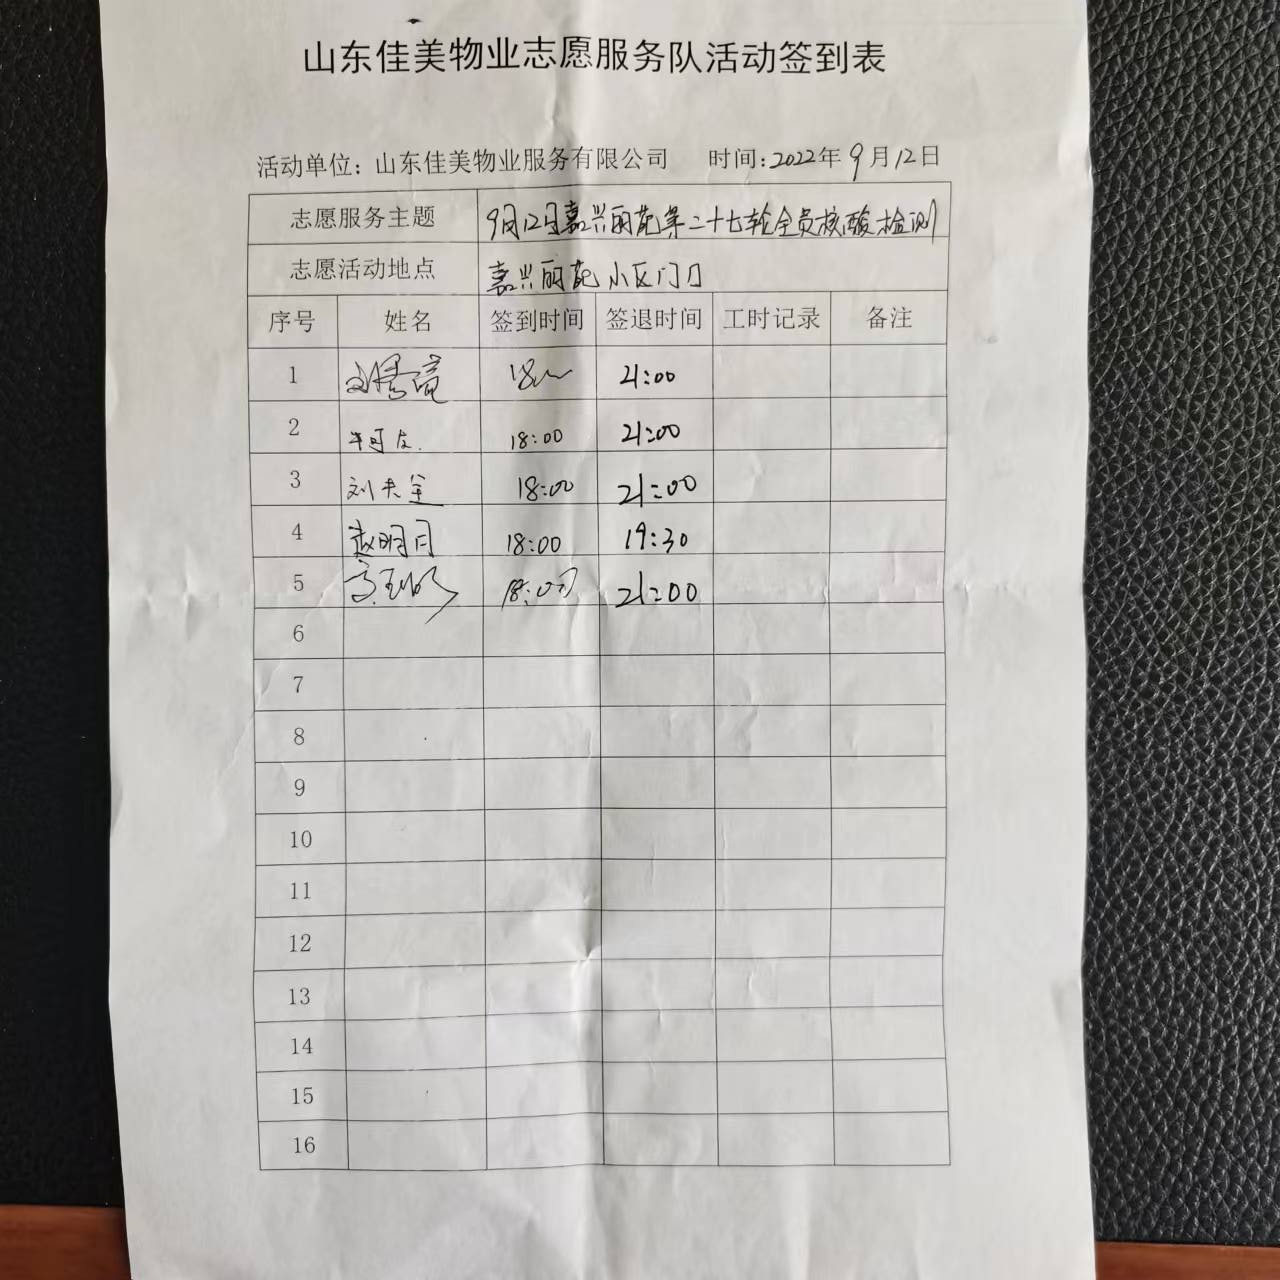 山东佳美物业志愿服务队活动签到表
活动单位：山东佳美物业服务有限公司 时间:2022年9月12日
志愿服务主题 9月12日嘉兴丽苑第二十七轮全员核酸检测
志愿活动地点 嘉兴丽苑小区门口
序号 姓名 签到时间 签退时间 工时记录 备注
1 21:00
2 18:00 21:00
3 18:00 21:00
4 赵明月 18:00 19:30
5 18:00 21:00
6
7
8
9
10
11
12
13
14
15
16